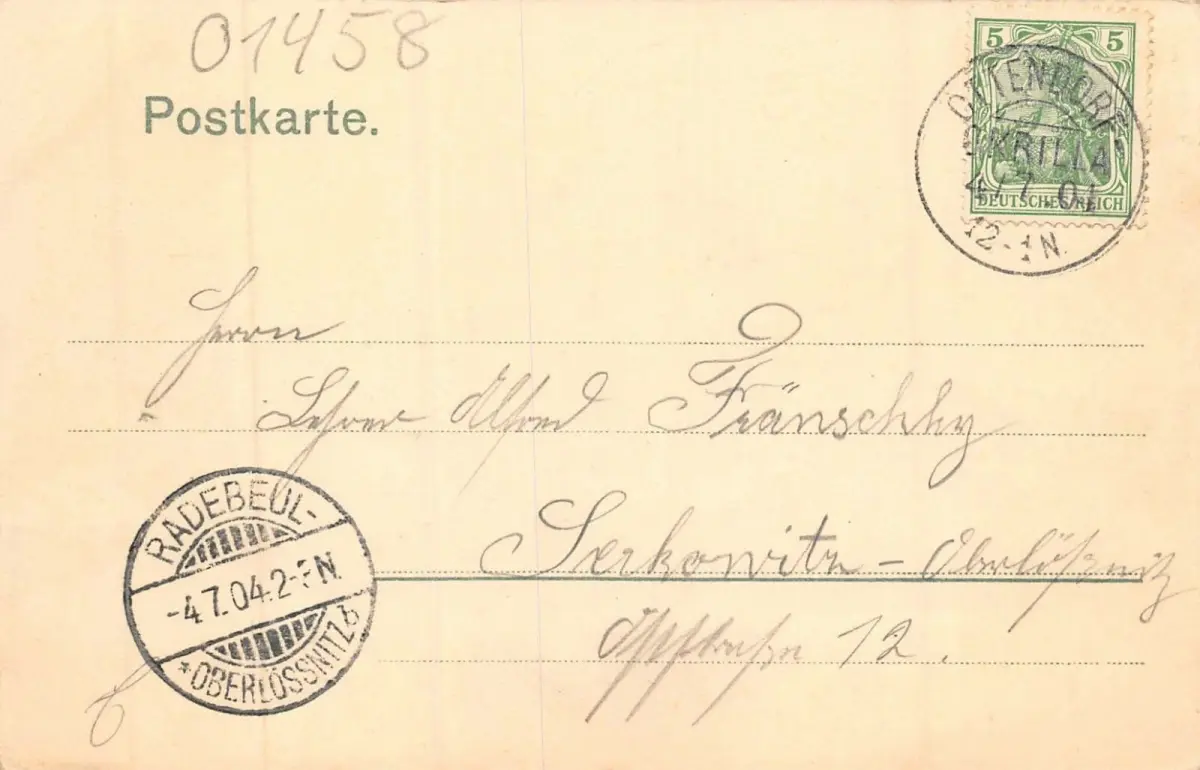 01458
Postkarte.
5 5
DEUTSCHES REICH
OTTENDORF
OKRILLA
4/7.04
12-1N.
Herrn
Lehrer Alfred Fränschky
Serkowitz – Oberlößnitz
12.
RADEBEUL-
-4.7.04.2- N.
*OBERLÖSSNITZ b